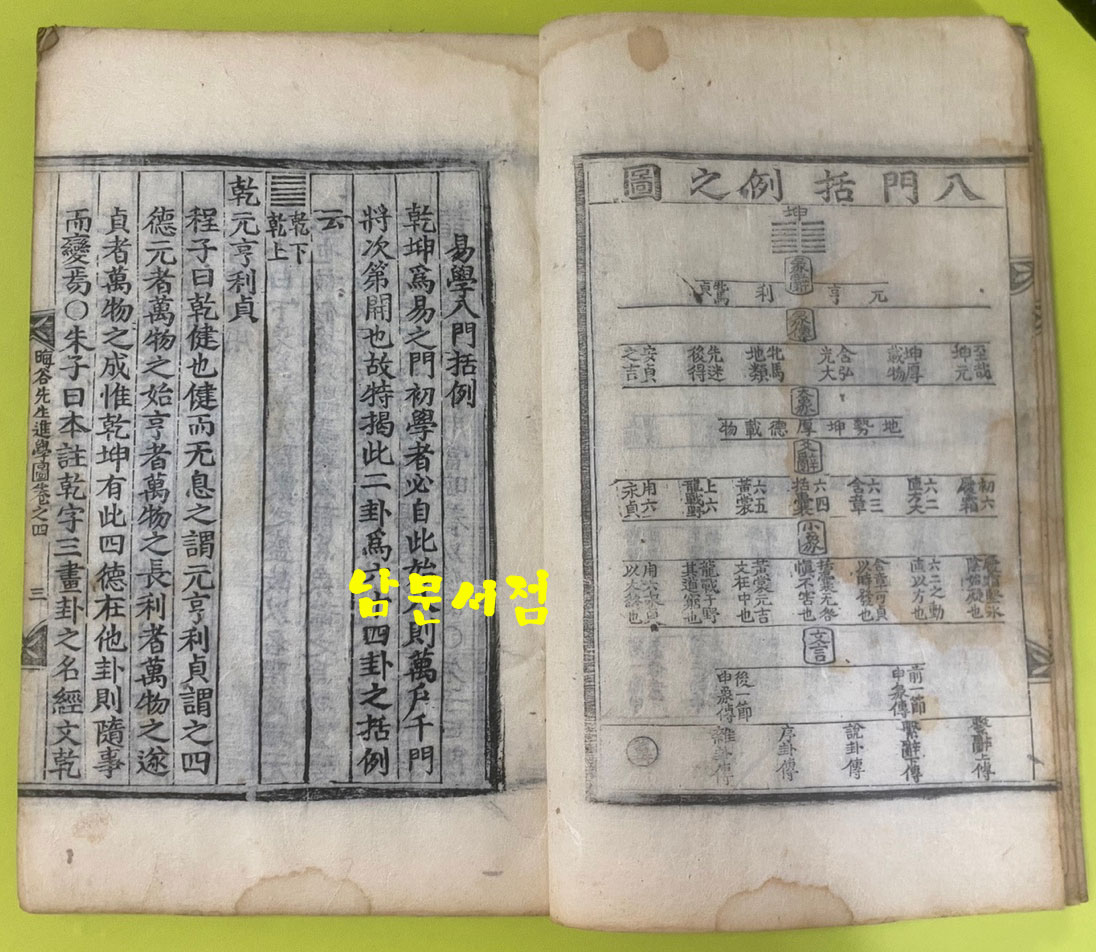 入門括例之圖
坤
彖辭
元亨利牝馬貞
彖傳
至哉坤元
坤厚載物
含弘光大
牝馬地類
先迷後得
安貞之吉
大象
地勢坤厚德載物
爻辭
初六履霜
六二直方大
六三含章
六四括囊
六五黃裳
上六龍戰野
用六永貞
小象
履霜堅氷陰始凝也
六二之動直以方也
含章可貞以時發也
括囊无咎愼不害也
黃裳元吉文在中也
龍戰于野其道窮也
用六永貞以大終也
文言
前一節申彖傳
後一節申象傳
繫辭上傳
繫辭下傳
說卦傳
序卦傳
雜卦傳
易學入門括例
乾坤爲易之門初學者必自此始入則萬戶千門
將次第開也故特揭此二卦爲六十四卦之括例
云
乾下
乾上
乾元亨利貞
程子曰乾健也健而无息之謂元亨利貞謂之四
德元者萬物之始亨者萬物之長利者萬物之遂
貞者萬物之成惟乾坤有此四德在他卦則隨事
而變焉○朱子曰本註乾字三畫卦之名經文乾
晦谷先生進學圖卷之四
三
남문서점